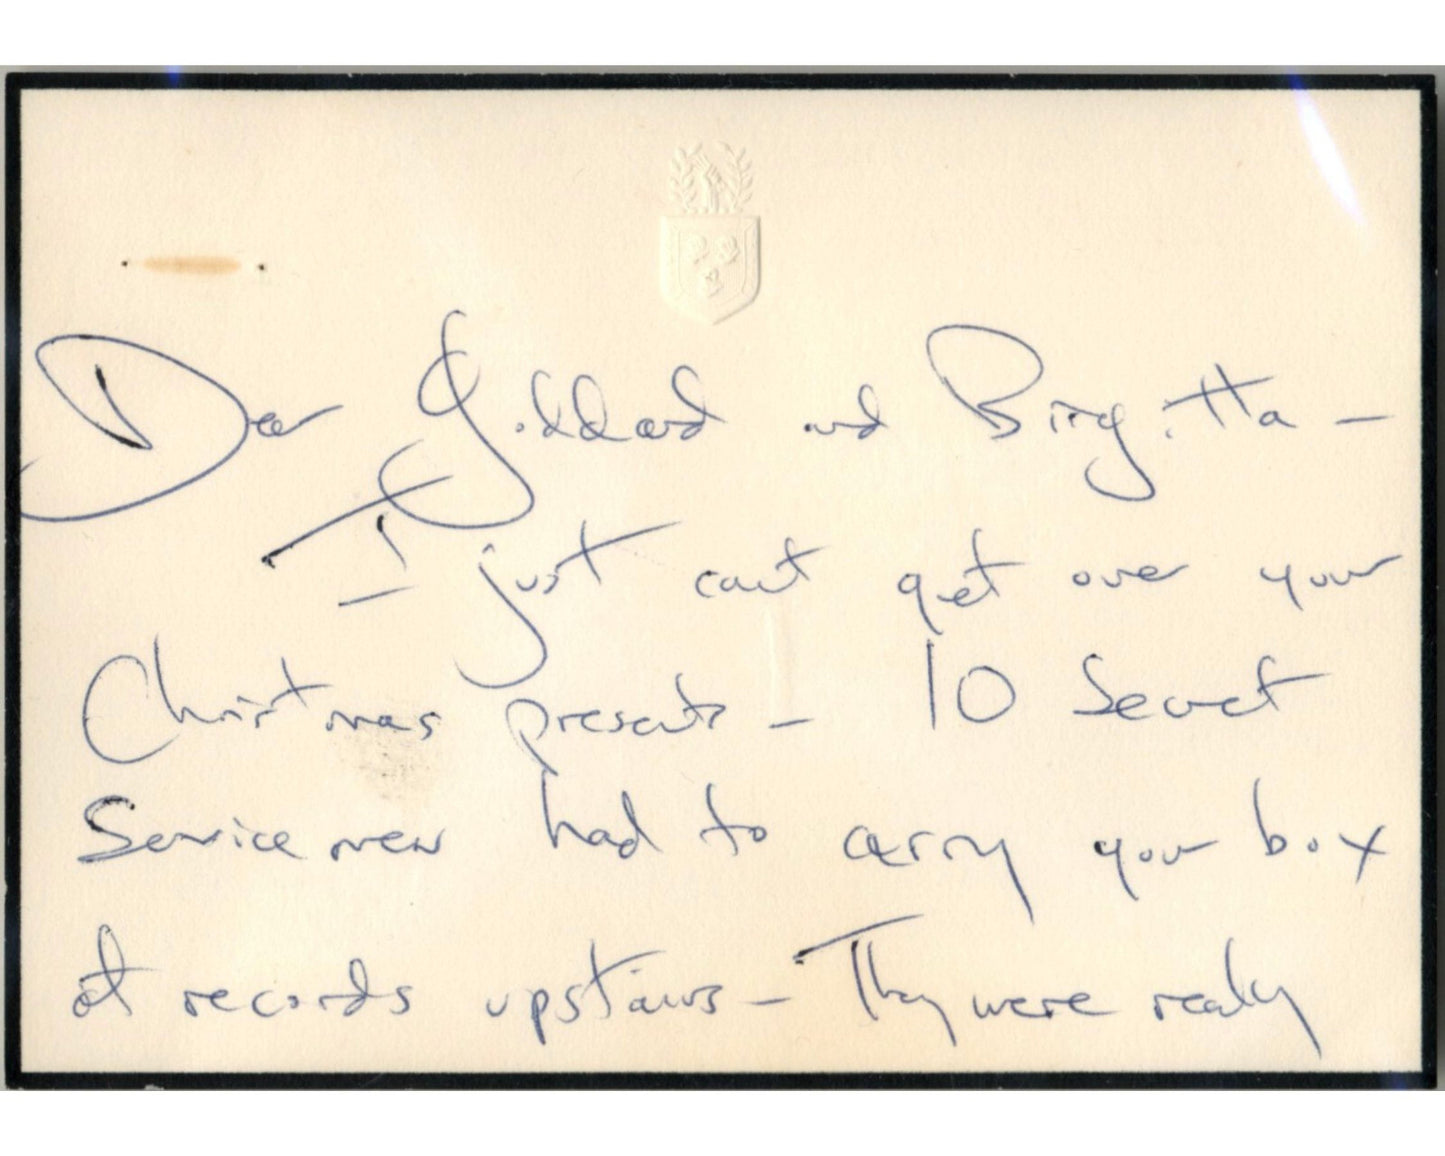 Dear Goddard and Birgitta –
I just can't get over your
Christmas presents – 10 Secret
Service men had to carry your box
of records upstairs – They were really